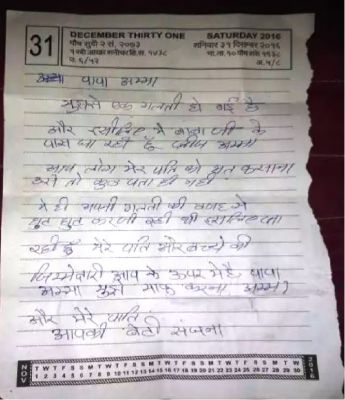 31
DECEMBER THIRTY ONE
SATURDAY 2016
पौष सुदी २ सं. २०७३
शनिवार ३१ दिसम्बर २०१६
पापा अम्मा
मुझसे एक गलती हो गई है
और इसीलिए मैं बाबा जी के
पास जा रही हूँ प्लीज अम्मा
आप लोग मेरे पति को मत फसाना
उसे तो कुछ पता ही नहीं
मैं ही अपनी गलती की वजह से
घुट घुट
रही हूँ मेरे पति और बच्चो की
जिम्मेदारी आप के ऊपर में है पापा
अम्मा मुझे माफ करना अम्मा
और मेरे पति
आपकी बेटी संजना
NOV
T W T F S S M T W T F S S M T W T F S S M T W T F S S M T W
1 2 3 4 5 6 7 8 9 10 11 12 13 14 15 16 17 18 19 20 21 22 23 24 25 26 27 28 29 30
2016